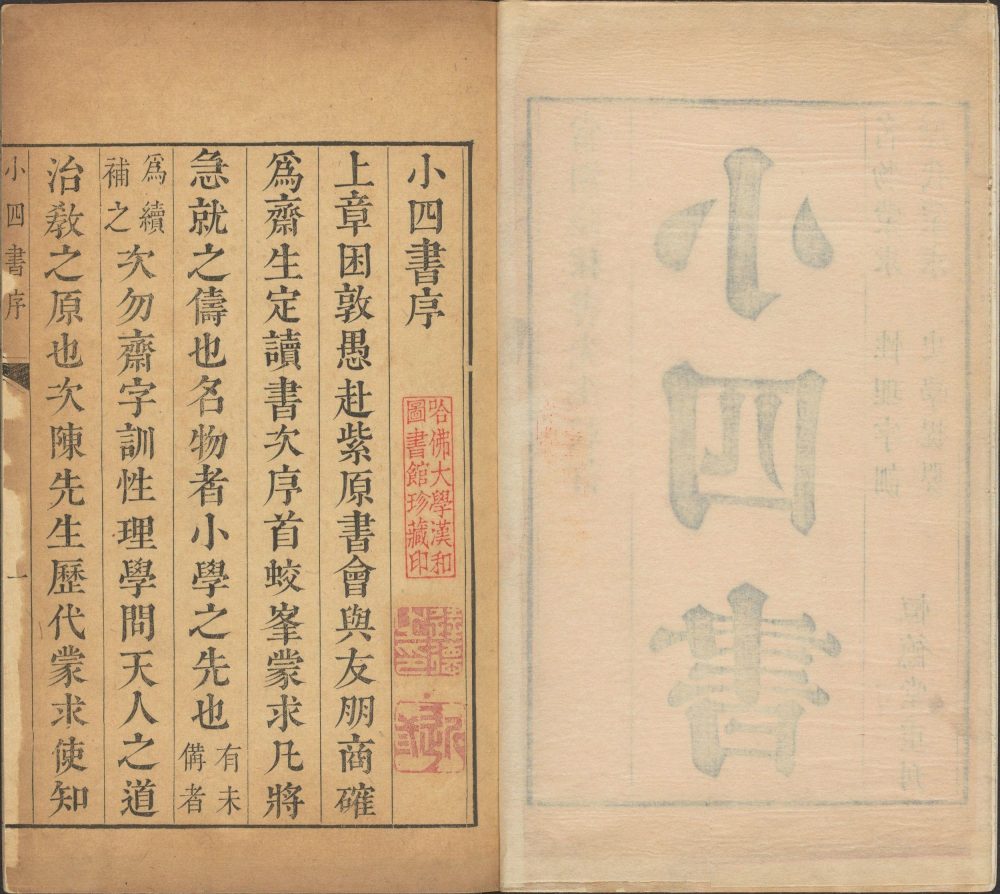 小四書
名物蒙求 性理字訓
恒德堂重刊
小四書序
哈佛大學漢和
圖書館珍藏印
上章困敦愚赴紫原書會與友朋商確
爲齋生定讀書次序首蛟峯蒙求凡將
急就之儔也名物者小學之先也有未
備者
爲續
補之次勿齋字訓性理學問天人之道
治教之原也次陳先生歷代蒙求使知
小四書序
一